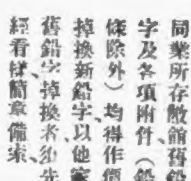 同業所存敝館舊鉛
字及各項附件（鉛
條除外）均得作價
掉換新鉛字、以他家
舊鉛字掉換者、須先
經看樣、簡章備索、